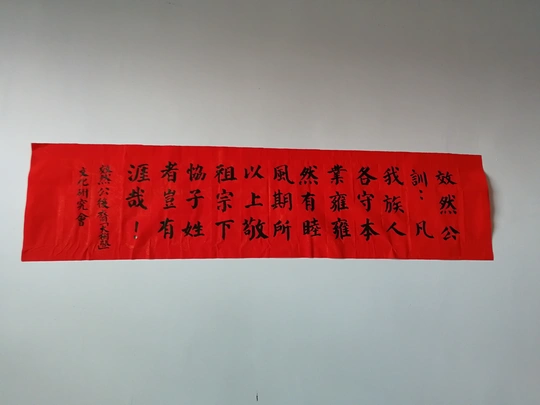 效然公
訓：凡
我族人
各守本
業雍雍
然有睦
風期所
以上敬
祖宗下
恊子姓
者豈有
涯哉！
然公後裔
文化研究會